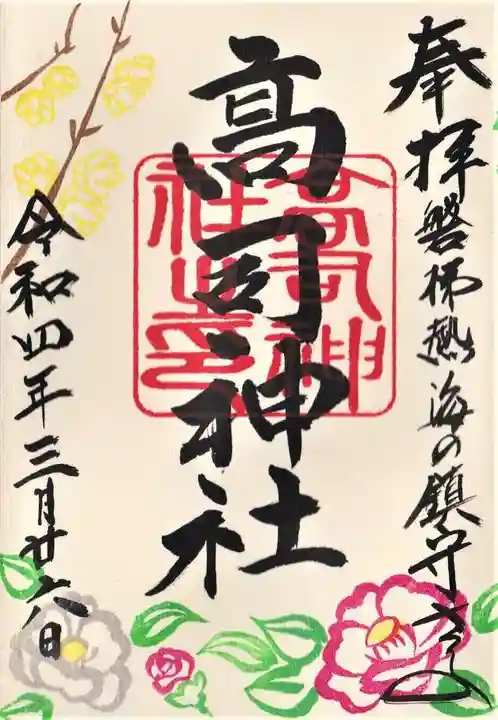 奉拝
磐梯熱海の鎮守さま
高司神社
高司神社之印
令和四年三月廿六日